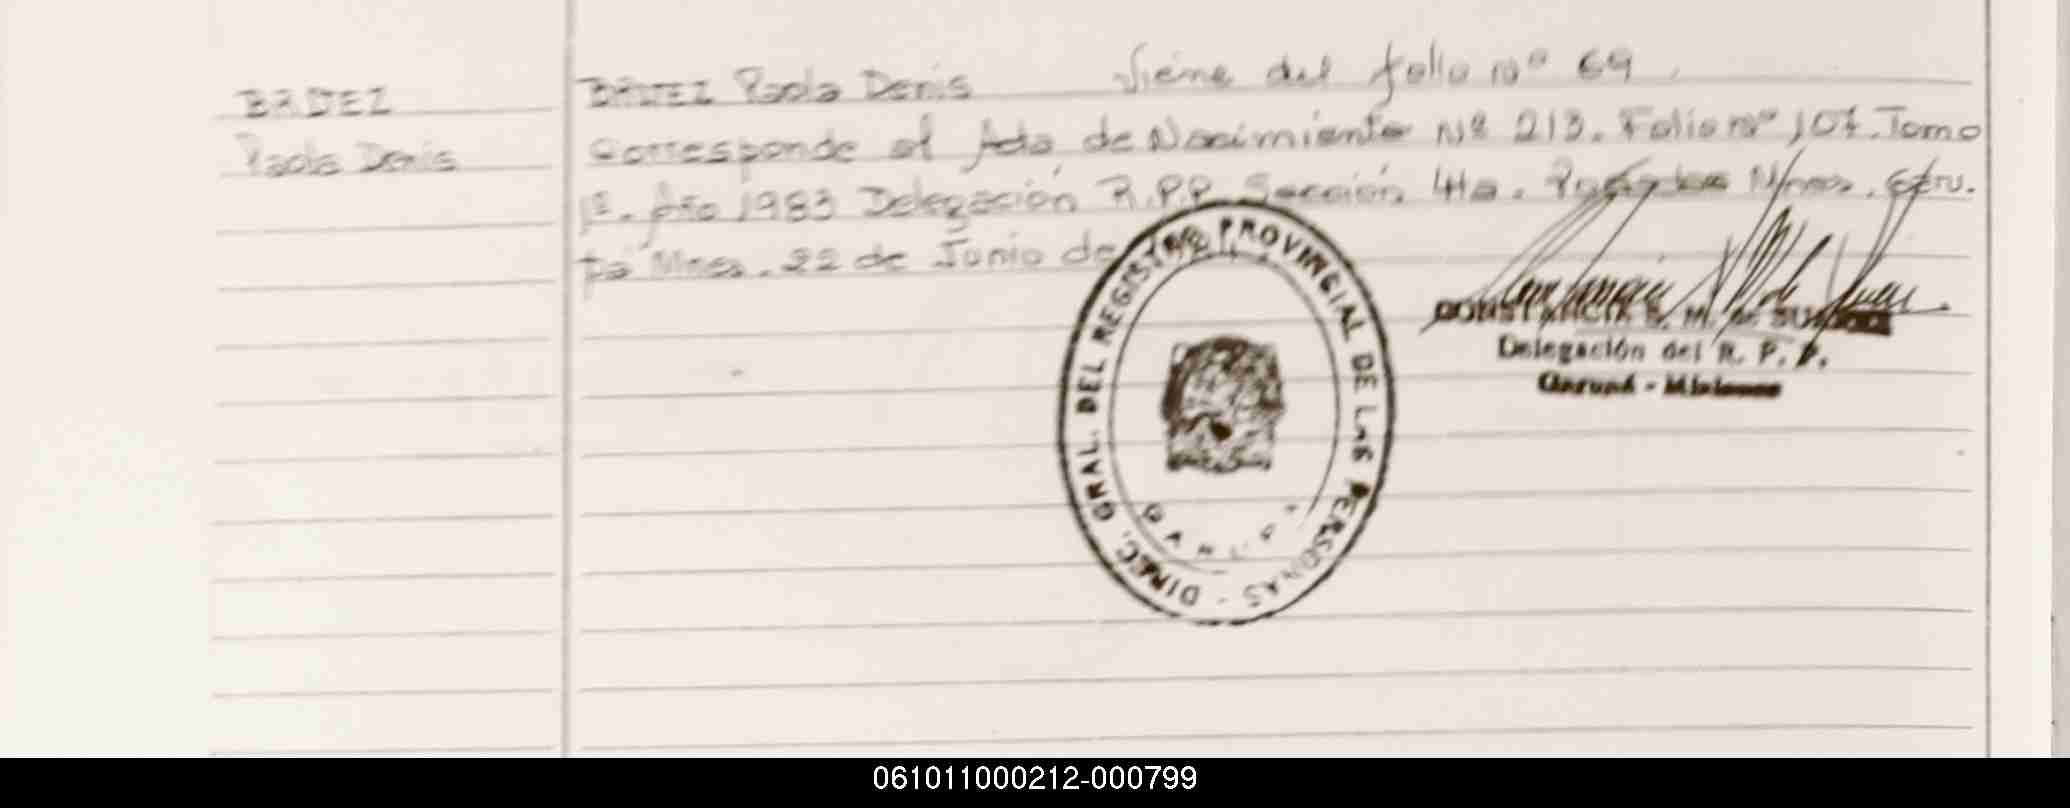 BAEZ
Paola Denis
BAEZ Paola Denis Viene del folio nº 69
Corresponde al Acta de Nacimiento Nº 213. Folio nº 107. Tomo
1º. Año 1983 Delegación R.P.P. Sección 4ta. Posadas Mnes. Garu.
pá Mnes. 22 de Junio de
DIREC. GRAL. DEL REGISTRO PROVINCIAL DE LAS PERSONAS -
CONSTANCIA S. M. de
Delegación del R. P. P.
Garupá - Misiones
061011000212-000799